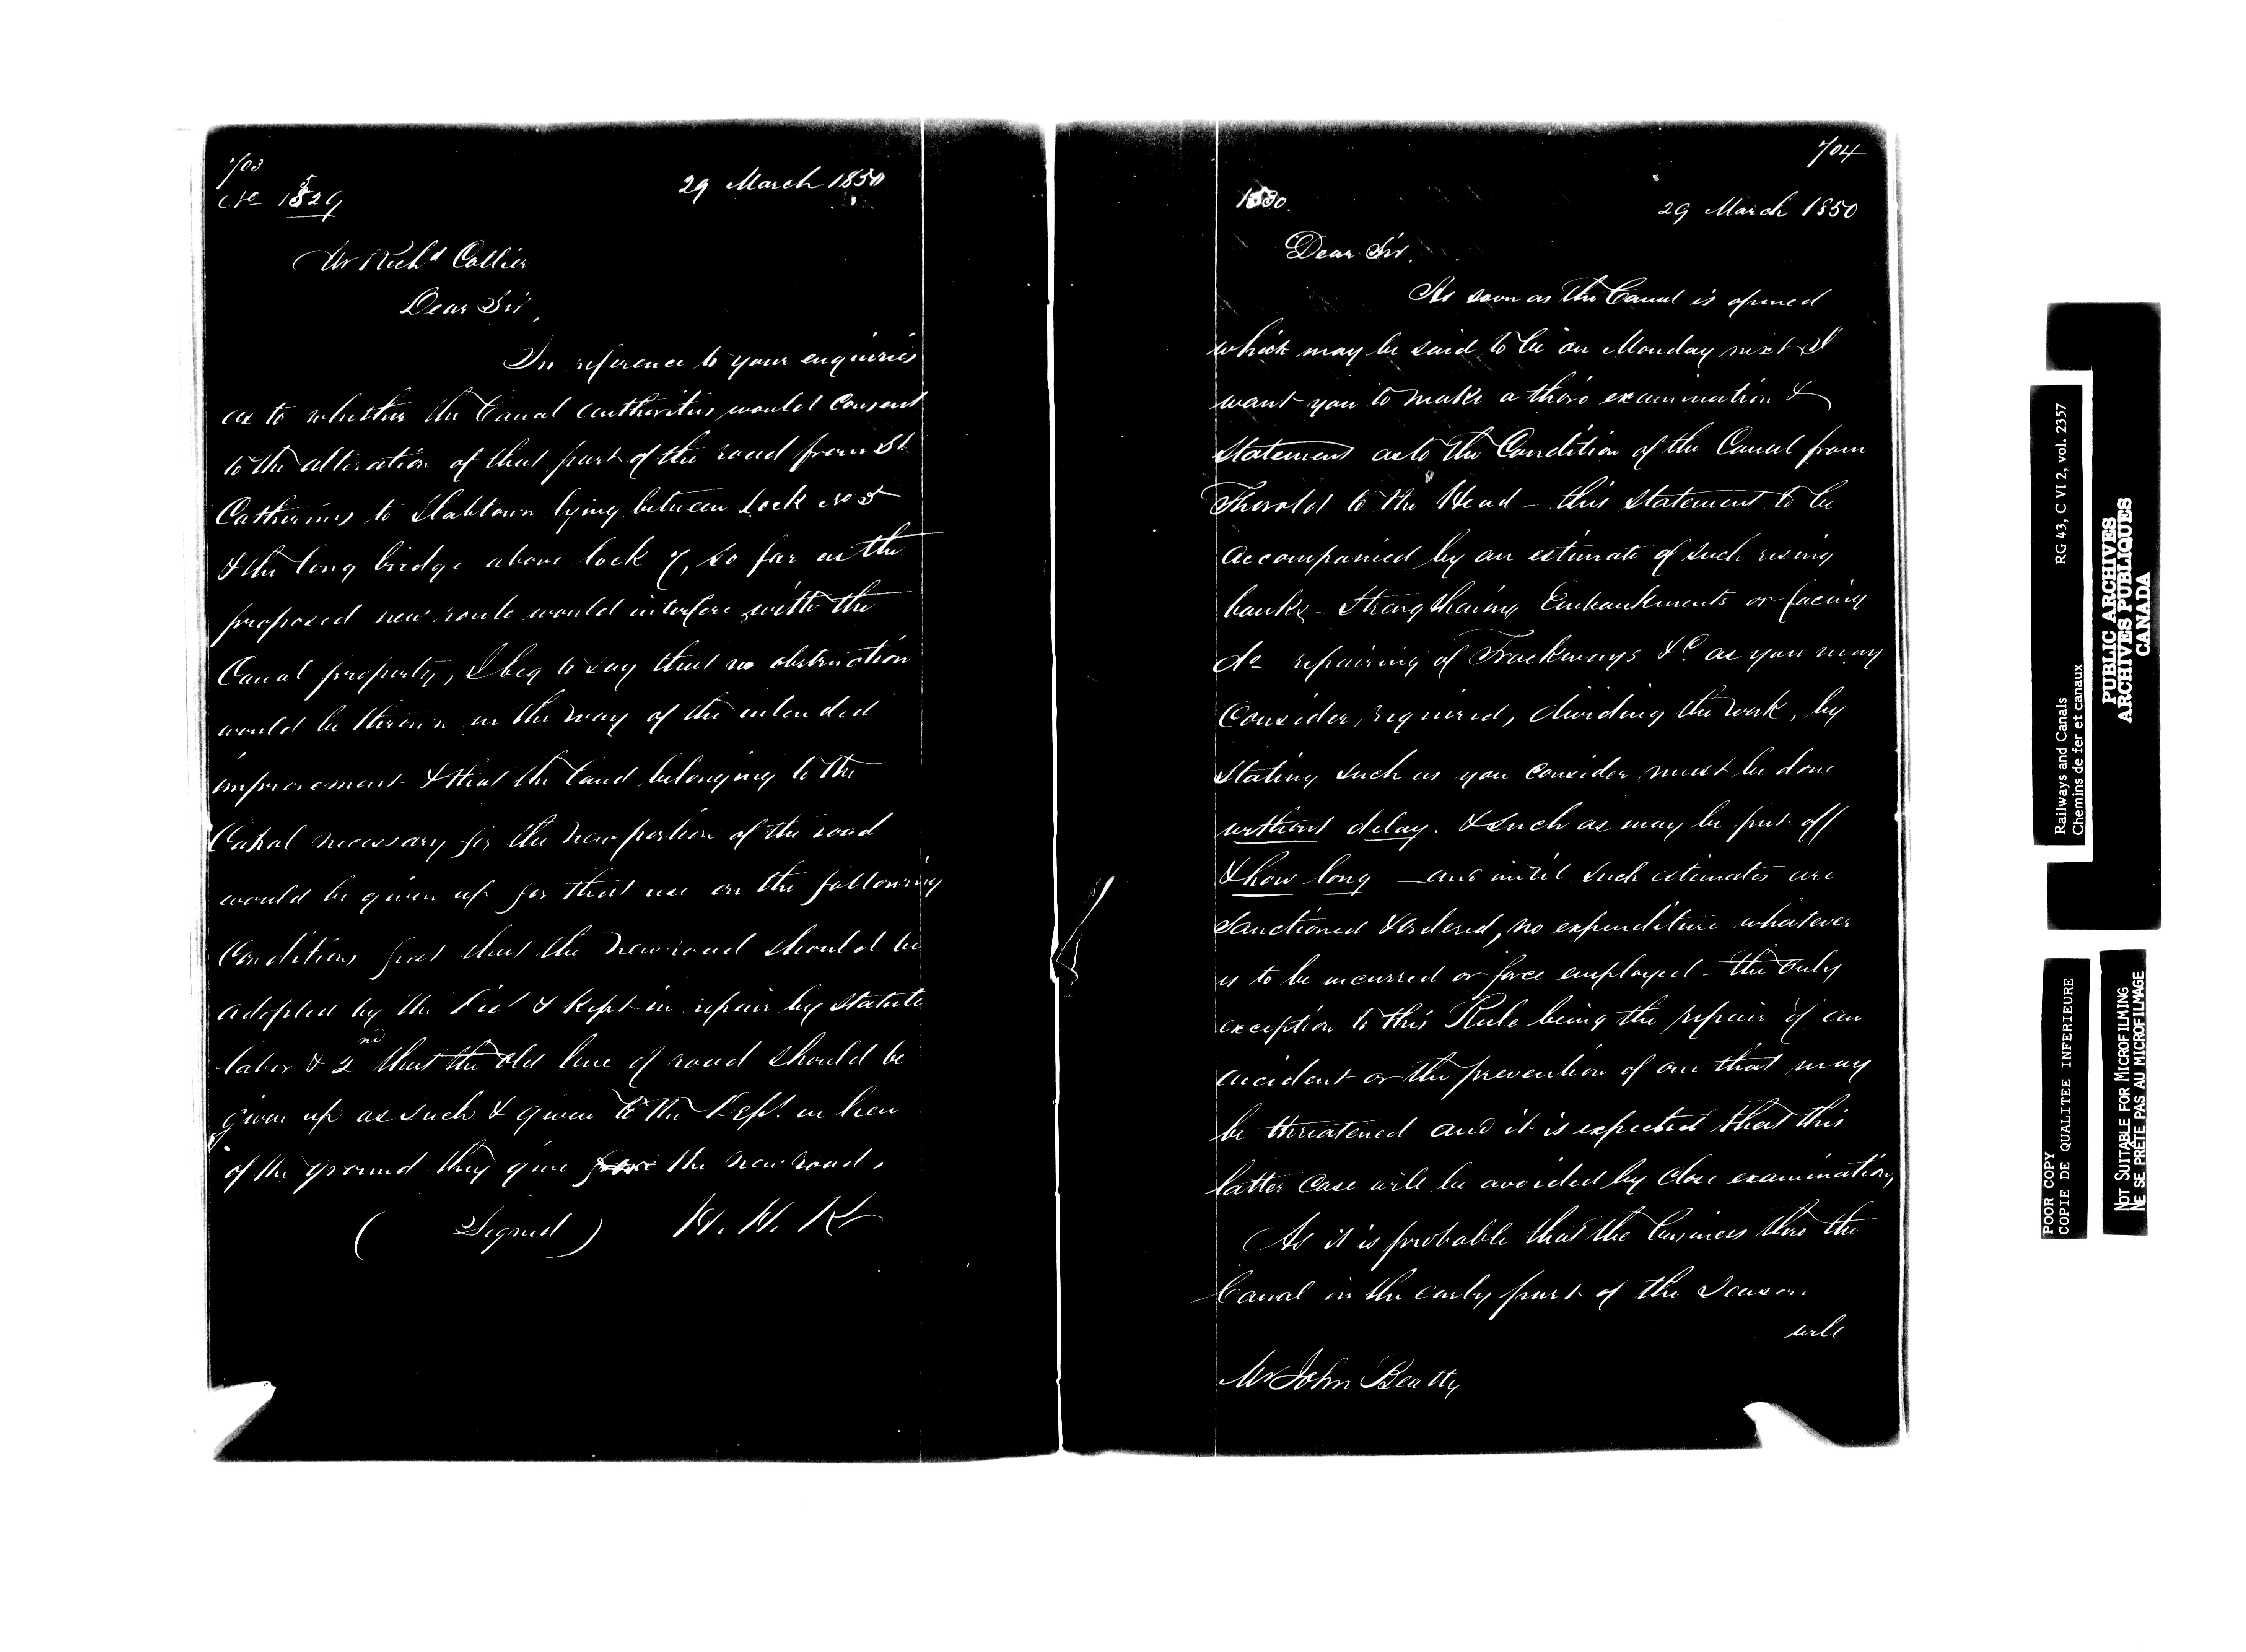 703
No 1529
29 March 1850
Mr Richd Collier
Dear Sir,
In reference to your enquiries
as to whether the Canal authorities would consent
to the alteration of that part of the road from St
Catherines to Slabtown lying between Lock No 5
& the long bridge above lock 7, so far as the
proposed new route would interfere with the
Canal property, I beg to say that no obstruction
would be thrown in the way of the intended
improvement & that the land belonging to the
Canal necessary for the new portion of the road
would be given up for that use on the following
Conditions first that the new road should be
adopted by the & kept in repair by statute
labor & 2nd that the old line of road should be
given up as such & given to the Dept. in lieu
of the ground they give for the new road.
(Signed) H. H. K
704
1530.
29 March 1850
Dear Sir,
As soon as the Canal is opened
which may be said to be on Monday next I
want you to make a thoro examination &
statement as to the Condition of the Canal from
Thorold to the Head - this statement to be
accompanied by an estimate of such rising
banks - strengthening Embankments or facing
do repairing of Trackways &c. as you may
Consider required, dividing the work, by
stating such as you consider must be done
without delay. & such as may be put off
& how long - and until such estimates are
sanctioned & ordered, no expenditure whatever
is to be incurred or force employed - the only
exception to this Rule being the repair of an
accident or the prevention of one that may
be threatened and it is expected that this
latter case will be avoided by close examination,
As it is probable that the business thro the
Canal in the early part of the season
will
Mr John Beatty
Railways and Canals RG 43, C VI 2, vol. 2357
Chemins de fer et canaux
PUBLIC ARCHIVES
ARCHIVES PUBLIQUES
CANADA
POOR COPY
COPIE DE QUALITEE INFERIEURE
NOT SUITABLE FOR MICROFILMING
NE SE PRÊTE PAS AU MICROFILMAGE